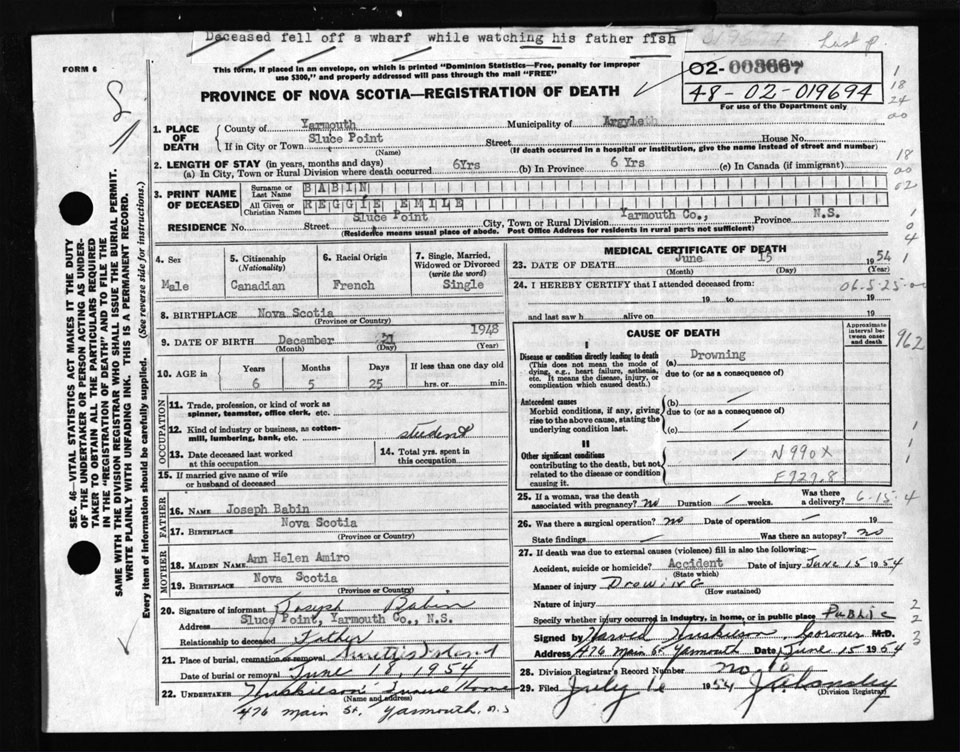 Deceased fell off a wharf while watching his father fish
Lust p.
FORM 6
This form, if placed in an envelope, on which is printed "Dominion Statistics—Free, penalty for improper
use $300," and properly addressed will pass through the mail "FREE"
02-003667
48-02-019694
For use of the Department only
PROVINCE OF NOVA SCOTIA—REGISTRATION OF DEATH
SEC. 46—VITAL STATISTICS ACT MAKES IT THE DUTY
OF THE UNDERTAKER OR PERSON ACTING AS UNDER-
TAKER TO OBTAIN ALL THE PARTICULARS REQUIRED
IN THE "REGISTRATION OF DEATH" AND TO FILE THE
SAME WITH THE DIVISION REGISTRAR WHO SHALL ISSUE THE BURIAL PERMIT.
WRITE PLAINLY WITH UNFADING INK. THIS IS A PERMANENT RECORD.
Every item of information should be carefully supplied. (See reverse side for instructions.)
1. PLACE OF DEATH
County of Yarmouth Municipality of Argyle
If in City or Town Sluce Point Street House No.
(Name) (If death occurred in a hospital or institution, give the name instead of street and number)
2. LENGTH OF STAY (in years, months and days)
(a) In City, Town or Rural Division where death occurred 6Yrs (b) In Province 6 Yrs (c) In Canada (if immigrant)
3. PRINT NAME OF DECEASED
Surname or Last Name BABIN
All Given or Christian Names REGGIE EMILE
RESIDENCE No. Street Sluce Point City, Town or Rural Division Yarmouth Co., Province N.S.
(Residence means usual place of abode. Post Office Address for residents in rural parts not sufficient)
4. Sex Male
5. Citizenship (Nationality) Canadian
6. Racial Origin French
7. Single, Married, Widowed or Divorced (write the word) Single
8. BIRTHPLACE Nova Scotia
(Province or Country)
9. DATE OF BIRTH December 21 1948
(Month) (Day) (Year)
10. AGE in Years 6 Months 5 Days 25 If less than one day old hrs. or min.
OCCUPATION
11. Trade, profession, or kind of work as
spinner, teamster, office clerk, etc.
12. Kind of industry or business, as cotton-
mill, lumbering, bank, etc. student
13. Date deceased last worked at this occupation
14. Total yrs. spent in this occupation
15. If married give name of wife
or husband of deceased
FATHER
16. NAME Joseph Babin
17. BIRTHPLACE Nova Scotia
(Province or Country)
MOTHER
18. MAIDEN NAME Ann Helen Amiro
19. BIRTHPLACE Nova Scotia
(Province or Country)
20. Signature of informant Joseph Babin
Address Sluce Point, Yarmouth Co., N.S.
Relationship to deceased Father
21. Place of burial, cremation or removal Island
Date of burial or removal June 18, 1954
22. UNDERTAKER Huskilson Home
(Name and Address)
476 Main St. Yarmouth, n.s
MEDICAL CERTIFICATE OF DEATH
23. DATE OF DEATH June 15 1954
(Month) (Day) (Year)
24. I HEREBY CERTIFY that I attended deceased from:
19 to 19
and last saw h alive on 19
06-5-25-
CAUSE OF DEATH
Approximate interval between onset and death
I
Disease or condition directly leading to death
(This does not mean the mode of
dying, e.g., heart failure, asthenia,
etc. It means the disease, injury, or
complication which caused death.)
(a) Drowning
due to (or as a consequence of)
Antecedent causes
Morbid conditions, if any, giving
rise to the above cause, stating the
underlying condition last.
(b)
due to (or as a consequence of)
(c)
II
Other significant conditions
contributing to the death, but not
related to the disease or condition
causing it.
N990X
E929.8
962
25. If a woman, was the death
associated with pregnancy? no Duration weeks. Was there a delivery?
6-15-4
26. Was there a surgical operation? no Date of operation 19
State findings Was there an autopsy? no
27. If death was due to external causes (violence) fill in also the following:—
Accident, suicide or homicide? Accident Date of injury June 15 1954
(State which)
Manner of injury Drowing
(How sustained)
Nature of injury
Specify whether injury occurred in industry, in home, or in public place Public
Signed by Huskilson Coroner M.D.
Address 476 Main St Yarmouth Date June 15 1954
28. Division Registrar's Record Number no. 10
29. Filed July 16 1954
(Division Registrar)